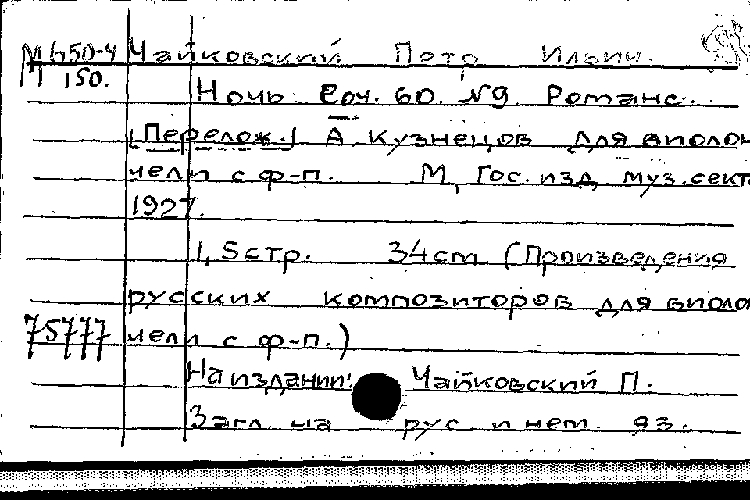 М 450-4 Чайковский Петр Ильич.
150.
Ночь Соч. 60. №9. Романс.
[Перелож.] А. Кузнецов для виолон
чели с ф-п. М, Гос. изд. муз. сект
1927.
1, 5 стр. 34 cm (Произведения
русских композиторов для виоло
75777 чели с ф-п.)
На издании: Чайковский П.
Загл. на рус. и нем. яз.